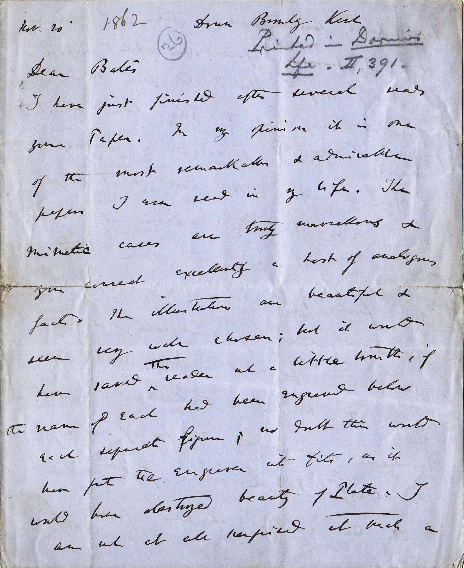 Nov. 20 1862 Down Bromley Kent
26
Printed in Darwin's
Life. II, 391.
Dear Bates
I have just finished after several reads
your Paper. In my opinion it is one
of the most remarkable & admirable
papers I ever read in my life. The
mimetic cases are truly marvellous &
you connect excellently a host of analogous
facts. The illustrations are beautiful &
seem very well chosen; but it would
have saved the reader not a little trouble, if
the name of each had been engraved below
each separate figure; no doubt this would
have put the engraver into fits, as it
would have destroyed beauty of Plate. I
am not at all surprised at such a